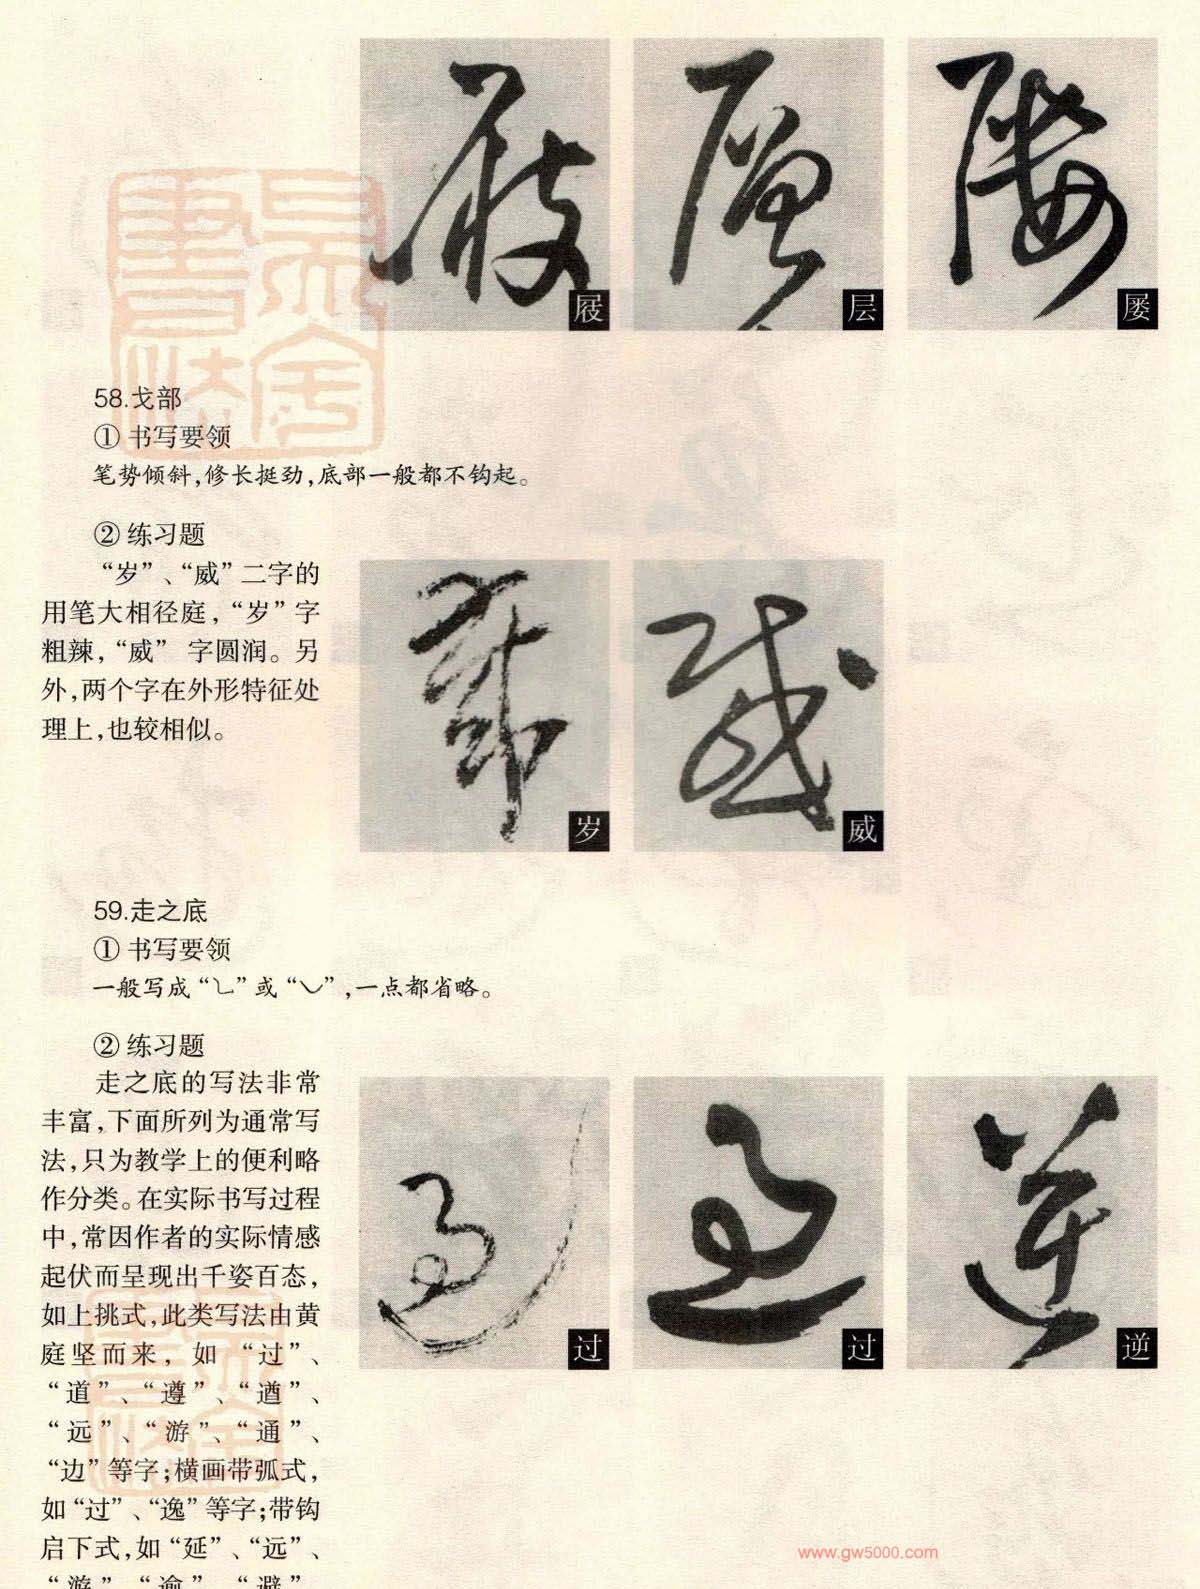 屐
层
屡
58.戈部
① 书写要领
笔势倾斜,修长挺劲,底部一般都不钩起。
② 练习题
“岁”、“威”二字的
用笔大相径庭,“岁”字
粗辣,“威” 字圆润。另
外,两个字在外形特征处
理上,也较相似。
岁
威
59.走之底
① 书写要领
一般写成“㇄”或“㇃”,一点都省略。
② 练习题
走之底的写法非常
丰富,下面所列为通常写
法,只为教学上的便利略
作分类。在实际书写过程
中,常因作者的实际情感
起伏而呈现出千姿百态,
如上挑式,此类写法由黄
庭坚而来, 如 “过”、
“道”、“遵”、“遒”、
“远”、“游”、“通”、
“边”等字;横画带弧式,
如“过”、“逸”等字;带钩
启下式,如“延”、“远”、
“游”、“逾”、“避”、
过
过
逆
www.gw5000.com